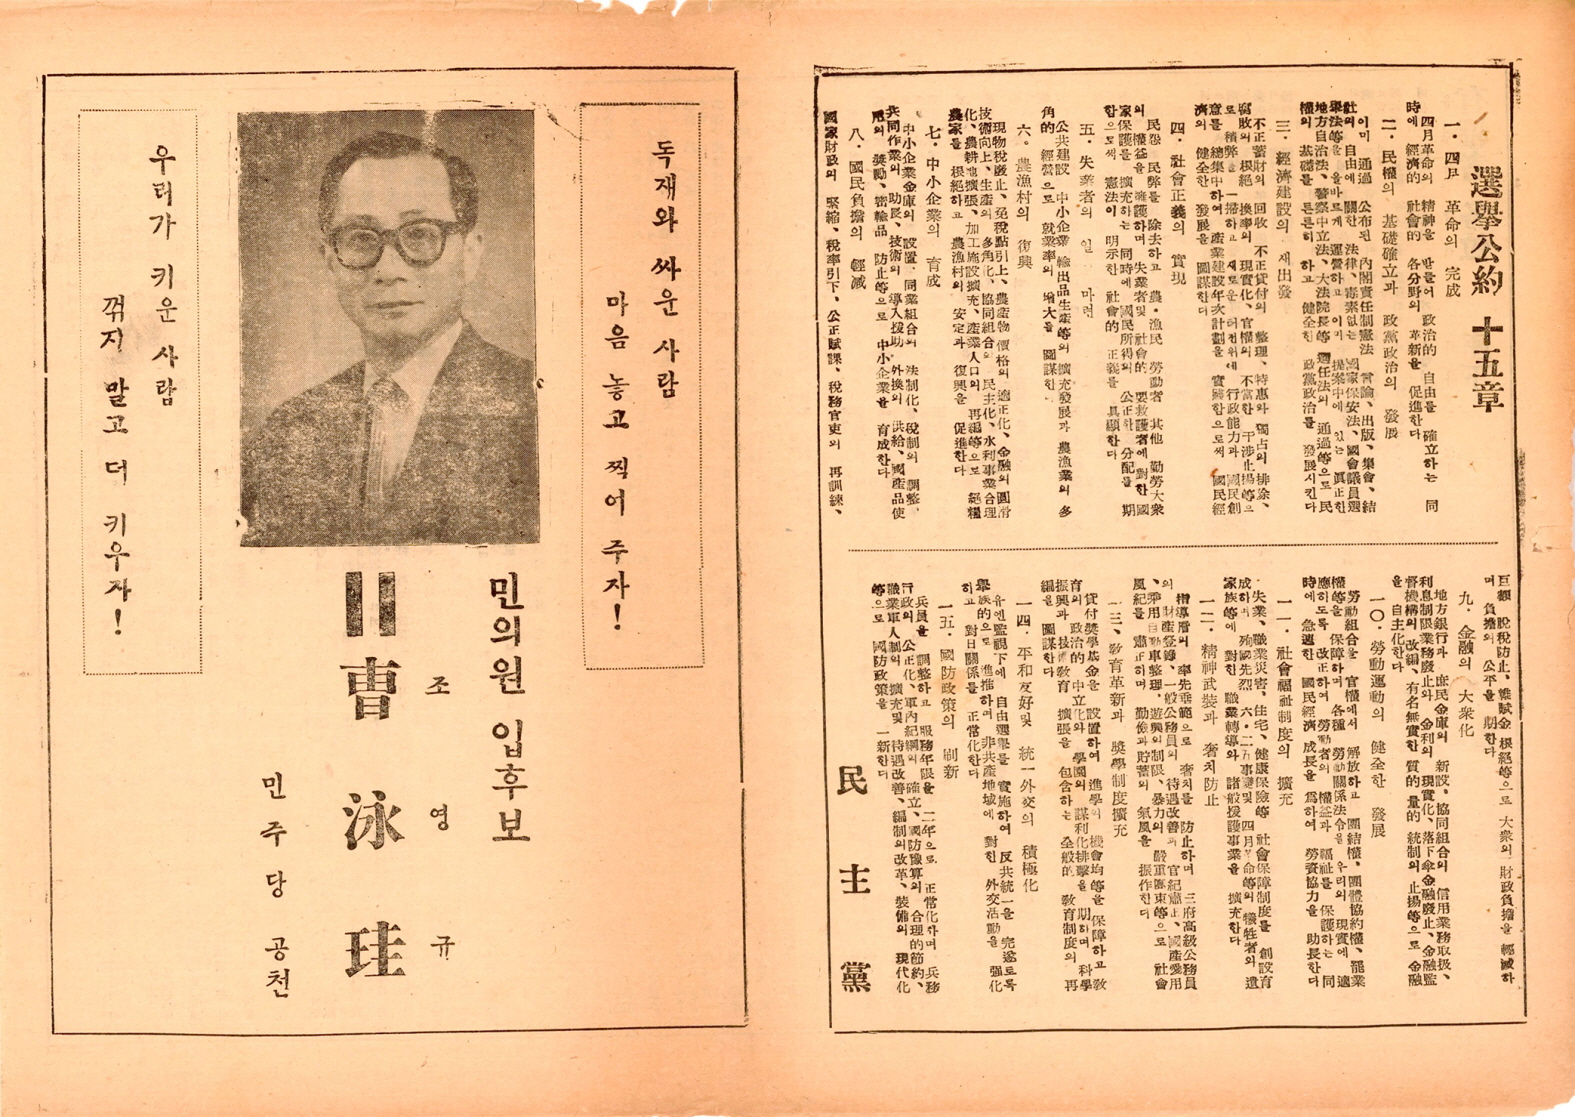 選擧公約 十五章
一. 四月 革命의 完成
四月革命의 精神을 받들어 政治的 自由를 確立하는 同
時에 經濟的 社會的 各分野의 革新을 促進한다
二. 民權의 基礎確立과 政黨政治의 發展
이미 通過 公布된 內閣責任制憲法 言論、出版、集會、結
社의 自由에 關한 法律、毒素없는 國家保安法、國會議員選
擧法等을 올바르게 運營하고 이미 提案中에 있는 眞正한
地方自治法、警察中立法、大法院長等 選任法의 通過等으로 民
權의 基礎를 튼튼히 하고 健全한 政黨政治를 發展시킨다
三. 經濟建設의 再出發
不正蓄財의 回收 不正貸付의 整理、特惠와 獨占의 排除、
腐敗의 根絕 換率의 現實化、官權의 不當한 干涉止揚等으
로 積弊를 一掃하고 새로운 터전위에 行政能力과 國民創
意를 總集中하여 產業建設年次計劃을 實踐함으로써 國民經
濟의 健全한 發展을 圖謀한다
四. 社會正義의 實現
民怨 民弊를 除去하고 農・漁民 勞動者 其他 勤勞大衆
의 權益을 擁護하며 失業者및 社會的 要救護者에 對한 國
家保護를 擴充하는 同時에 國民所得의 公正한 分配를 期
함으로써 憲法이 明示한 社會的 正義를 具顯한다
五. 失業者의 일 마련
公共建設 中小企業 輸出品生產等의 擴充發展과 農漁業의 多
角的 經營으로 就業率의 增大를 圖謀한다
六. 農漁村의 復興
現物稅廢止、免稅點引上、農產物 價格의 適正化、金融의 圓滑
技術向上、生產의 多角化、協同組合의 民主化、水利事業合理
化、農耕地擴張、加工施設擴充、產業人口의 再編等으로 絕糧
農家를 根絕하고 農漁村의 安定과 復興을 促進한다
七. 中小企業의 育成
中小企業金庫의 設置 同業組合의 法制化、稅制의 調整、
共同作業의 助長、技術의 導入援助、外換의 供給、國產品使
用의 獎勵、密輸品 防止等으로 中小企業을 育成한다
八. 國民負擔의 輕減
國家財政의 緊縮、稅率引下、公正賦課、稅務官吏의 再訓練、
巨額 脫稅防止、雜賦金 根絕等으로 大衆의 財政負擔을 輕減하
며 負擔의 公平을 期한다
九. 金融의 大衆化
地方銀行과 庶民金庫의 新設、協同組合의 信用業務取扱、
利息制限業務廢止와 金利의 現實化、落下傘金融廢止、金融監
督機構의 改編、有名無實한 質的 量的 統制의 止揚等으로 金融
을 自主化한다
一〇. 勞動運動의 健全한 發展
勞動組合을 官權에서 解放하고 團結權、團體協約權、罷業
權等을 保障하며 各種 勞動關係法令을 우리의 現實에 適
應하도록 改正하여 勞動者의 權益과 福祉를 保護하는 同
時에 急速한 國民經濟 成長을 爲하여 勞資協力을 助長한다
一一. 社會福祉制度의 擴充
失業、職業災害、住宅、健康保險等 社會保障制度를 創設育
成하며 殉國先烈 六・二五事變및 四月革命等의 犧牲者의 遺
家族等에 對한 職業輔導와 諸般援護事業을 擴充한다
一二. 精神武裝과 奢侈防止
指導層의 率先垂範으로 奢侈를 防止하며 三府高級公務員
의 財產登錄、一般公務員의 待遇改善과 官紀肅正、國產愛用
、乘用自動車整理、遊興의 制限、暴力의 嚴重團束等으로 社會
風紀를 肅正하며 勤儉과 貯蓄의 氣風을 振作한다
一三、敎育革新과 獎學制度擴充
貸付獎學基金을 設置하여 進學의 機會均等을 保障하고 敎
育의 政治的 中立化와 學園의 謀利化排擊을 期하며 科學
振興과 技術敎育 擴張을 包含하는 全般的 敎育制度의 再
編을 圖謀한다
一四. 平和友好및 統一外交의 積極化
유엔監視下에 自由選擧를 實施하여 反共統一을 完遂토록
擧族的으로 進推하며 非共產地域에 對한 外交活動을 強化
하고 對日關係를 正常化한다
一五. 國防政策의 刷新
兵員을 調整하고 服務年限을 二年으로 正常化하며 兵務
行政의 公正化、軍內紀綱의 確立、國防豫算의 合理的節約、
職業軍人制의 擴充및 待遇改善、編制의 改革、裝備의 現代化
等으로 國防政策을 一新한다
民主黨
독재와 싸운 사람
마음 놓고 찍어 주자!
민의원 입후보
조 영 규
II 曺 泳 珪
민주당 공천
우리가 키운 사람
꺾지 말고 더 키우자!